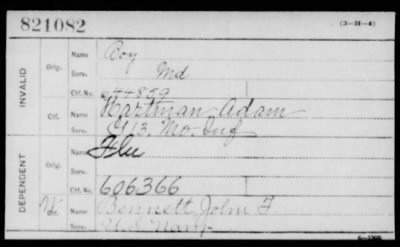 821082
(3-31-4)
INVALID
Orig.
Name Roy
Serv. Md
Ctf. No. 644859
Ctf. Name Hartman Adam
Serv. G 13, Mo. Inf
DEPENDENT
Orig.
Name Flu
Serv.
Ctf. No. 606366
Ctf. Name Bennett, John F
Serv. U.S. Navy